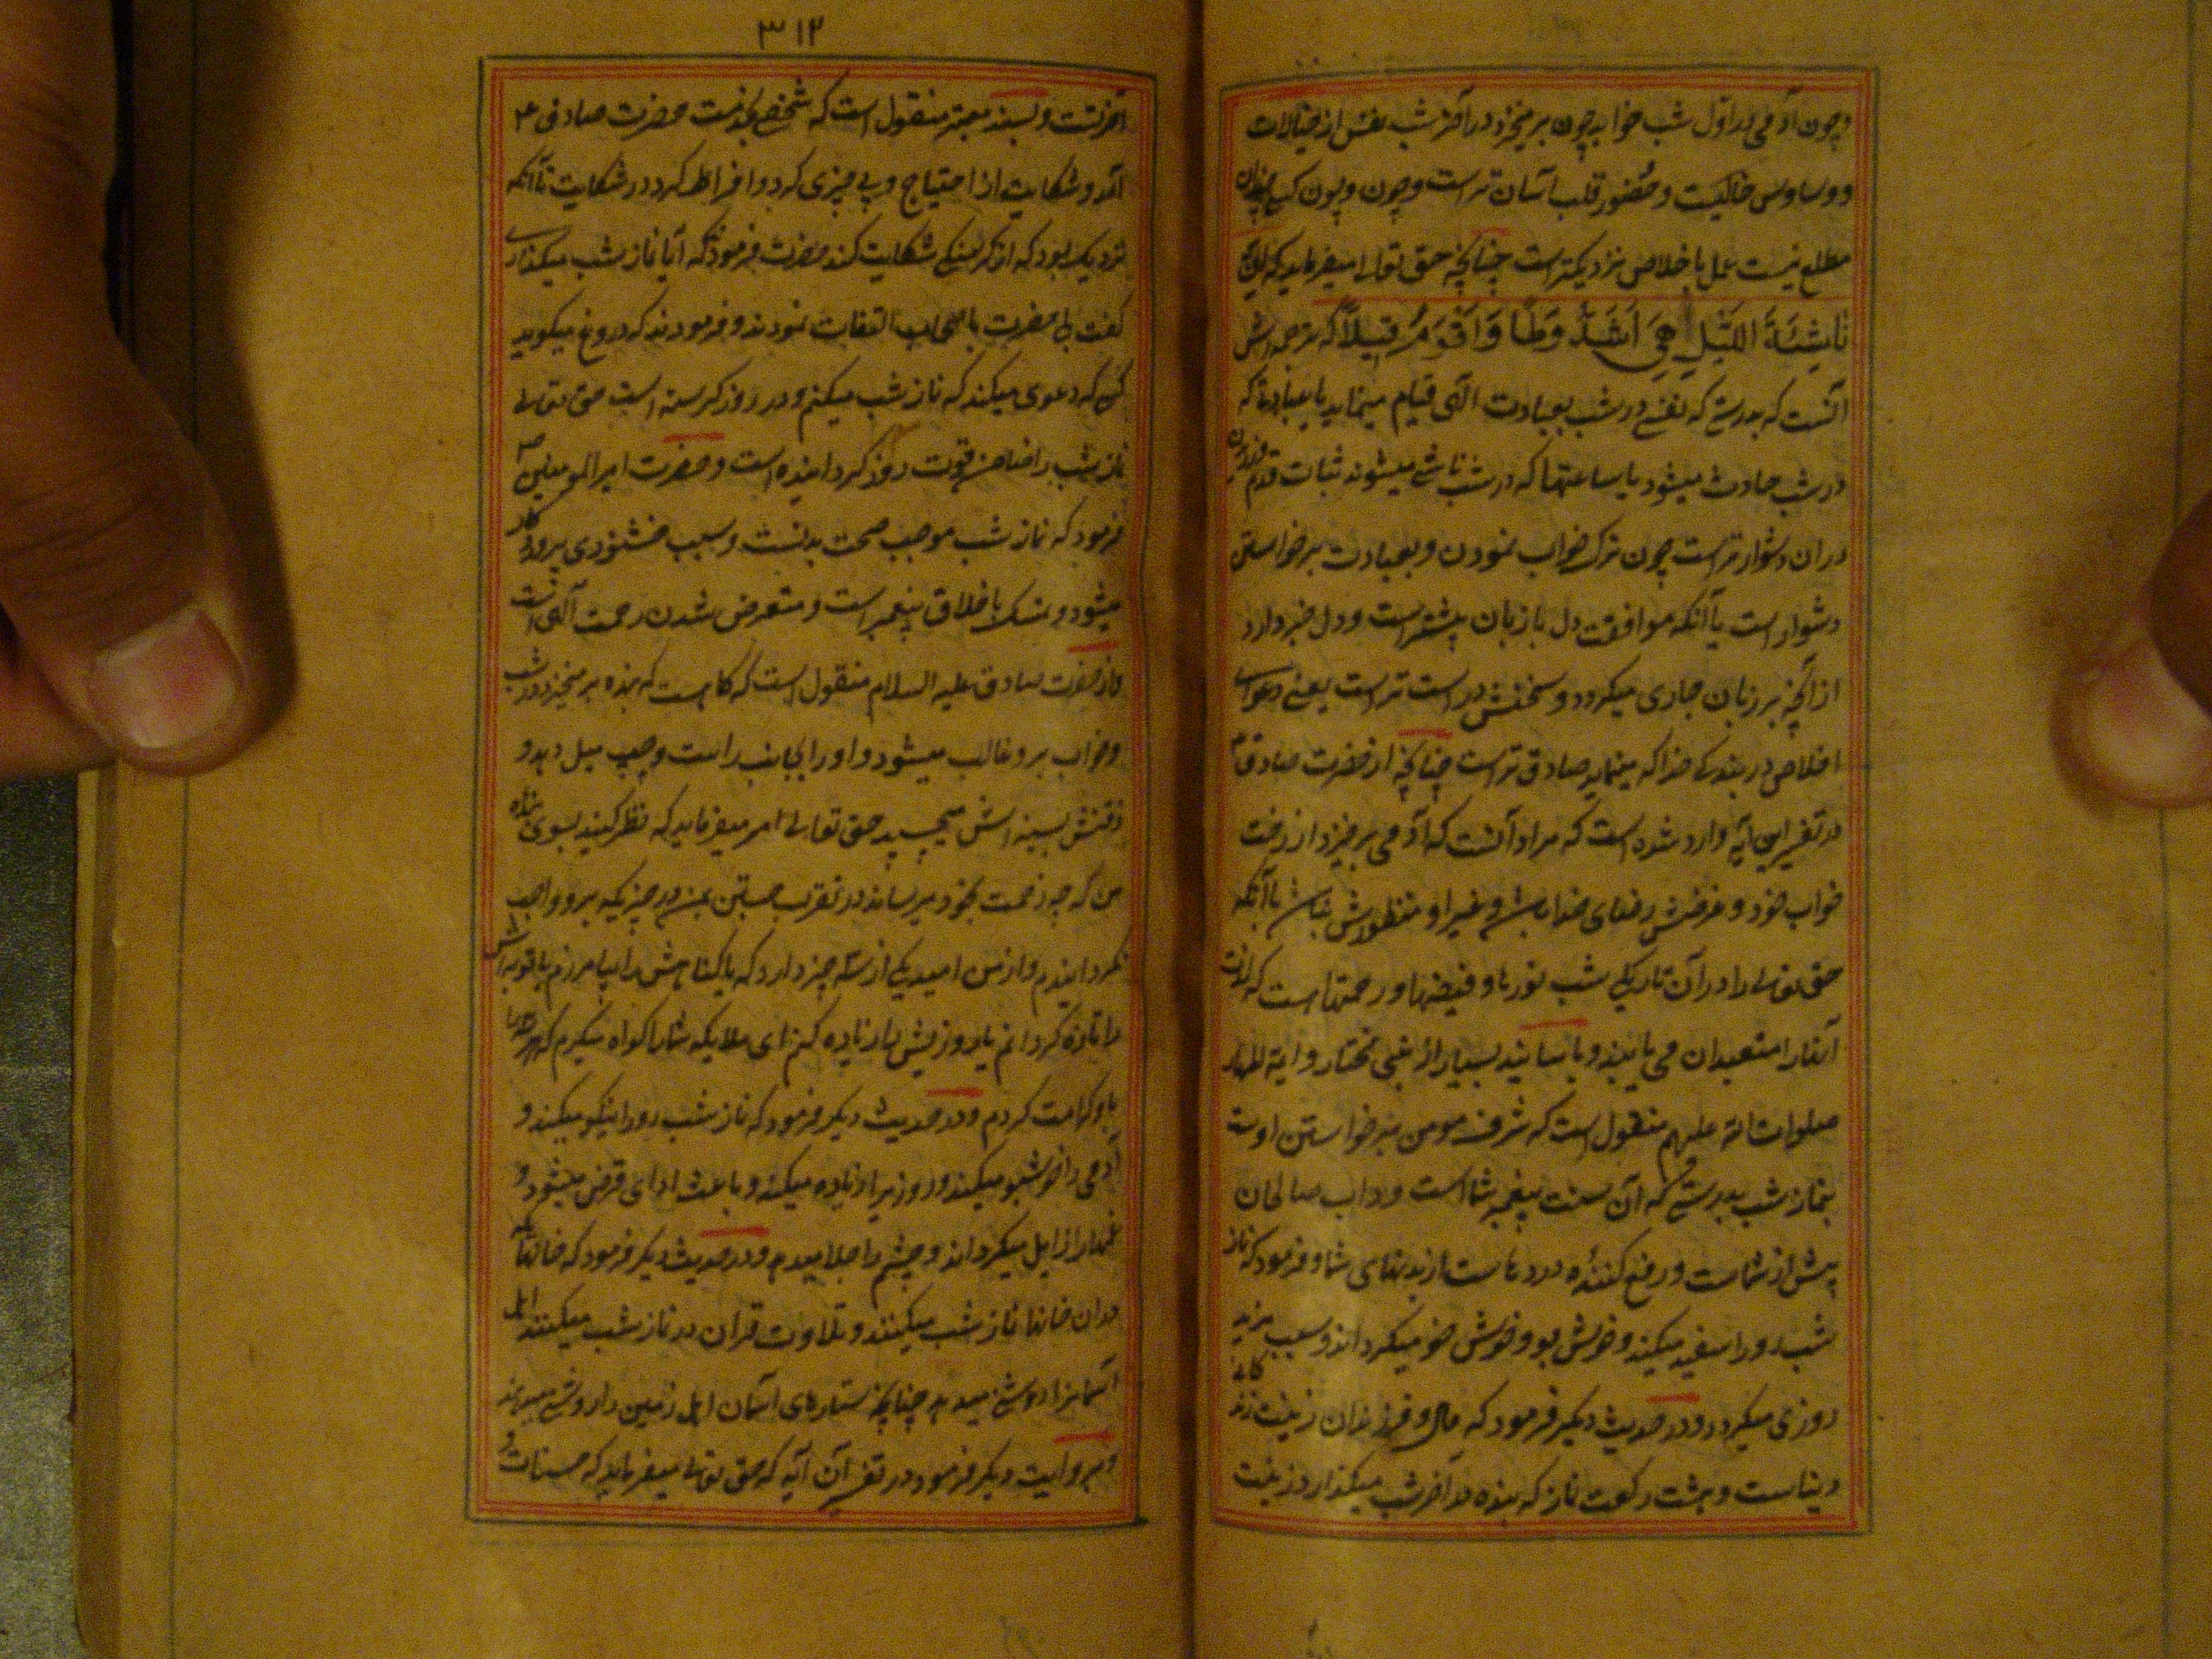 و چون آدمی در اول شب خوابید چون برمیخیزد در آخر شب نفس از خیالات
و وساوس خالیست و حضور قلب آسان تر است و چون کسی چندان
مطلع نیست عمل باخلاص نزدیکتر است چنانچه حق تعالی میفرماید که ان
ناشِئَةَ اللَّیْلِ هِیَ اَشَدُّ وَطْأً وَاَقْوَمُ قیلاً که ترجمه اش
آنست که بدرستی که نفسی در شب بعبادت الهی قیام مینماید یا عبادتها که
در شب حادث میشود یا ساعتها که در شب ناشی میشوند ثبات قدم ورزیدن
در ان دشوار تر است چون ترک خواب نمودن و بعبادت برخواستن
دشوار است یا آنکه موافقت دل با زبان بیشتر است و دل خبر دارد
از آنچه بر زبان جاری میکردد و سخنش درست تر است یعنی دعوای
اخلاص در بندکی خدا که مینماید صادق تر است چنانچه از حضرت صادق ع
در تفسیر این آیه وارد شده است که مراد آنست که آدمی برخیزد از رخت
خواب خود و غرضش رضای خدا باشد و غیر او منظورش نباشد با آنکه
حق تعالی را در آن تاریکی شب نورها و فیضها و رحمتها است که لذت
آنها را متعبدان می یابند و باسانید بسیار از نبی مختار و ایمه اطهار
صلوات الله علیهم منقول است که شرف مومن برخواستن اوست
بنماز شب بدرستی که آن سنت پیغمبر شما است و داب صالحان
پیش از شماست و رفع کننده دردهاست از بدنهای شما و فرمود که نماز
شب رو را سفید میکند و خوش بو و خوش خو میکرداند و سبب مزید
روزی میکردد و در حدیث دیکر فرمود که مال و فرزندان زینت زندکانی
دنیاست و هشت رکعت نماز که بنده در آخر شب میکذارد زینت
۳۱۲
آخرتست و بسند معتبر منقول است که شخصی بخدمت حضرت صادق ع
آمد و شکایت از احتیاج و بی چیزی کرد و افراط کرد در شکایت تا آنکه
نزدیک بود که از کرسنکی شکایت کند حضرت فرمود که آیا نماز شب میکذاری
کفت بلی حضرت باصحاب التفات نمودند و فرمودند که دروغ میکوید
کسی که دعوی میکند که نماز شب میکنم و در روز کرسنه است حق تعالی
نماز شب را ضامن قوت روز کردانیده است و حضرت امیر المومنین ص
فرمود که نماز شب موجب صحت بدنست و سبب خشنودی پروردکار
میشود و تمسک باخلاق پیغمبر است و متعرض شدن رحمت الهی است
و از حضرت صادق علیه السلام منقول است که کاه است که بنده برمیخیزد در شب
و خواب برو غالب میشود و او را بجانب راست و چپ میل دهد و
ذقنش بسینه اش میچسپد حق تعالی امر میفرماید که نظر کنید بسوی بنده
من که چه زحمت بخود میرساند در تقرب جستن بمن در چیزیکه برو واجب
نکردانیدم و از من امید یکی از سه چیز دارد که یا کناهش را بیامرزم یا توبه اش
را تازه کردانم یا روزیش را زیاده کنم ای ملایکه شما را کواه میکیرم که هر سه را
باو کرامت کردم و در حدیث دیکر فرمود که نماز شب رو را نیکو میکند و
آدمی را خوشبو میکند و روزی را زیاده میکند و باعث ادای قرض میشود و
غمها را زایل میکرداند و چشم را جلا میدهد و در حدیث دیکر فرمود که خانهائیکه
در ان خانها نماز شب میکنند و تلاوت قران در نماز شب میکنند اهل
آسمانرا روشنی میدهد چنانچه ستارهای آسمان اهل زمین را روشنی میدهند
و بروایت دیکر فرمود در تفسیر آن آیه که حق تعالی میفرماید که حسنات